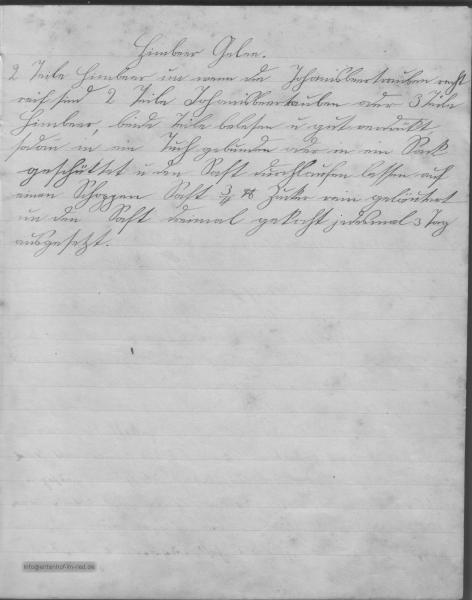 Himbeer Gelee.
2 Teile Himbeer un wenn die Johanisbeertrauben recht
reif sind 2 Teile Johanisbeertrauben oder 3 Teile
Himbeer, beide Teile belesen u gut verdrükt
sodan in ein Tuch gebunden oder in ein Sack
geschüttet u den Saft durchlaufen lassen auf
einen Schoppen Saft 3/4 ℔ Zucker rein geläutert
un den Saft dreimal gekocht jedesmal 3 Tag
ausgesetzt.
info@erlenhof-im-ried.de